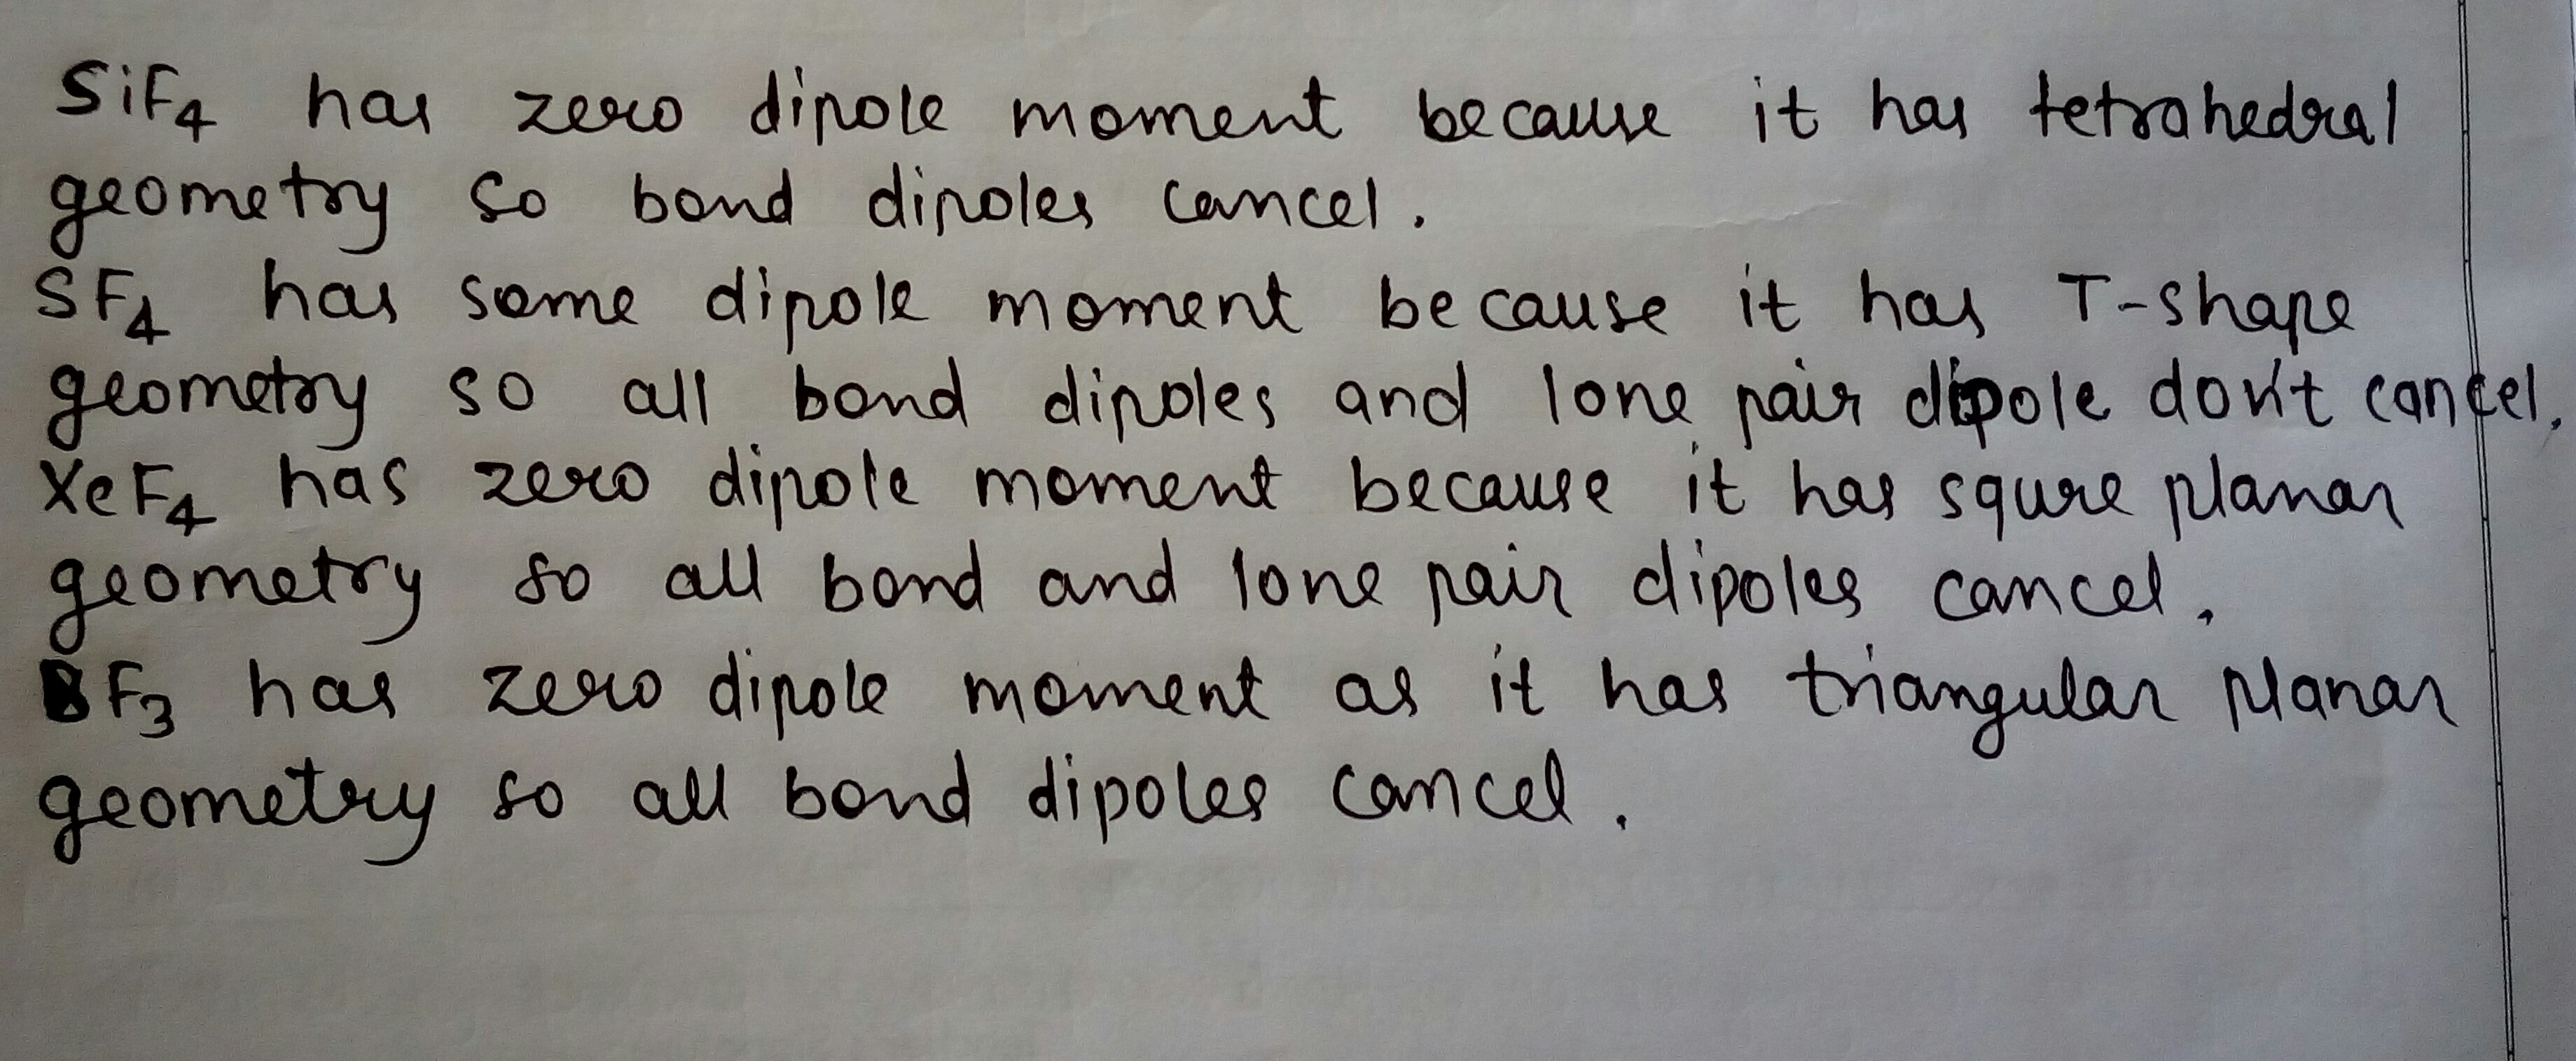 SiF4 has zero dipole moment because it has tetrahedral
geometry so bond dipoles cancel.
SF4 has some dipole moment because it has T-shape
geometry so all bond dipoles and lone pair dipole don't cancel.
XeF4 has zero dipole moment because it has squre planar
geometry so all bond and lone pair dipoles cancel.
BF3 has zero dipole moment as it has triangular planar
geometry so all bond dipoles cancel.